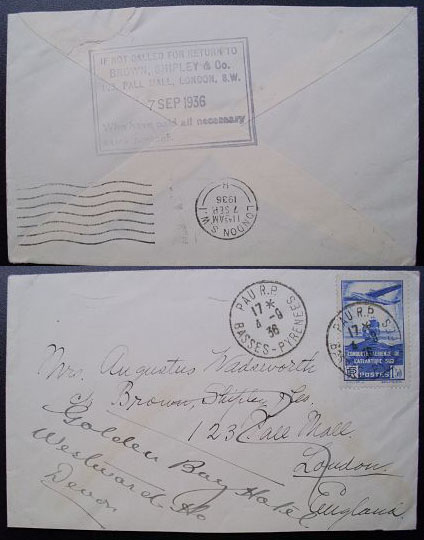 IF NOT CALLED FOR RETURN TO
BROWN, SHIPLEY & Co.
123, PALL MALL, LONDON, S.W.
7 SEP 1936
Who have paid all necessary
LONDON S.W.1
11 AM
7 SEP
1936
R
PAU R.P.
17 *
4 -9
36
BASSES-PYRENEES
PAU R.P.
17 *
CONQUETE AERIENNE DE
L'ATLANTIQUE SUD
RF POSTES 1f50
Mrs. Augustus Wadsworth
c/o Brown, Shipley & Co.
123 Pall Mall,
London,
England
Golden Bay Hotel
Westward-Ho
Devon